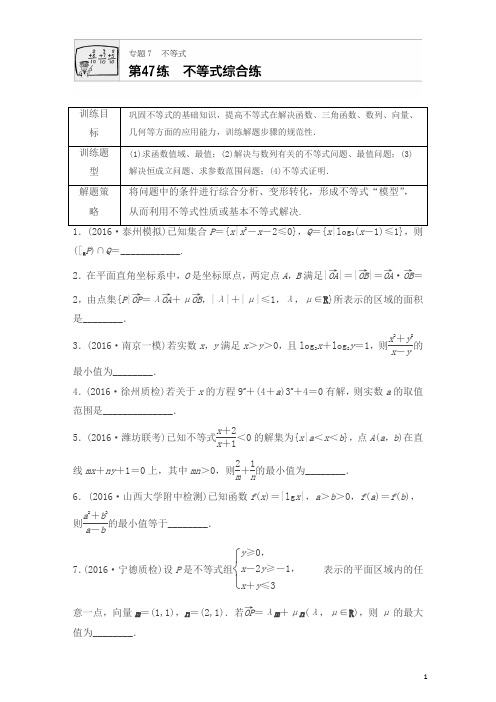 专题7 不等式
第47练 不等式综合练
训练目标 巩固不等式的基础知识，提高不等式在解决函数、三角函数、数列、向量、
几何等方面的应用能力，训练解题步骤的规范性．
训练题型 (1)求函数值域、最值；(2)解决与数列有关的不等式问题、最值问题；(3)
解决恒成立问题、求参数范围问题；(4)不等式证明．
解题策略 将问题中的条件进行综合分析、变形转化，形成不等式“模型”，
从而利用不等式性质或基本不等式解决.
1．(2016·泰州模拟)已知集合P＝{x|x²－x－2≤0}，Q＝{x|log₂(x－1)≤1}，则
(∁RP)∩Q＝____________.
2．在平面直角坐标系中，O是坐标原点，两定点A，B满足|OA→|＝|OB→|＝OA→·OB→＝
2，由点集{P|OP→＝λOA→＋μOB→，|λ|＋|μ|≤1，λ，μ∈R}所表示的区域的面积
是________．
3．(2016·南京一模)若实数x，y满足x＞y＞0，且log₂x＋log₂y＝1，则(x²＋y²)/(x－y)的
最小值为________．
4．(2016·徐州质检)若关于x的方程9ˣ＋(4＋a)3ˣ＋4＝0有解，则实数a的取值
范围是______________．
5．(2016·潍坊联考)已知不等式(x＋2)/(x＋1)＜0的解集为{x|a＜x＜b}，点A(a，b)在直
线mx＋ny＋1＝0上，其中mn＞0，则2/m＋1/n的最小值为________．
6．(2016·山西大学附中检测)已知函数f(x)＝|lgx|，a＞b＞0，f(a)＝f(b)，
则(a²＋b²)/(a－b)的最小值等于________．
7．(2016·宁德质检)设P是不等式组{y≥0，x－2y≥－1，x＋y≤3 表示的平面区域内的任
意一点，向量m＝(1,1)，n＝(2,1)．若OP→＝λm＋μn(λ，μ∈R)，则μ的最大
值为________．
1